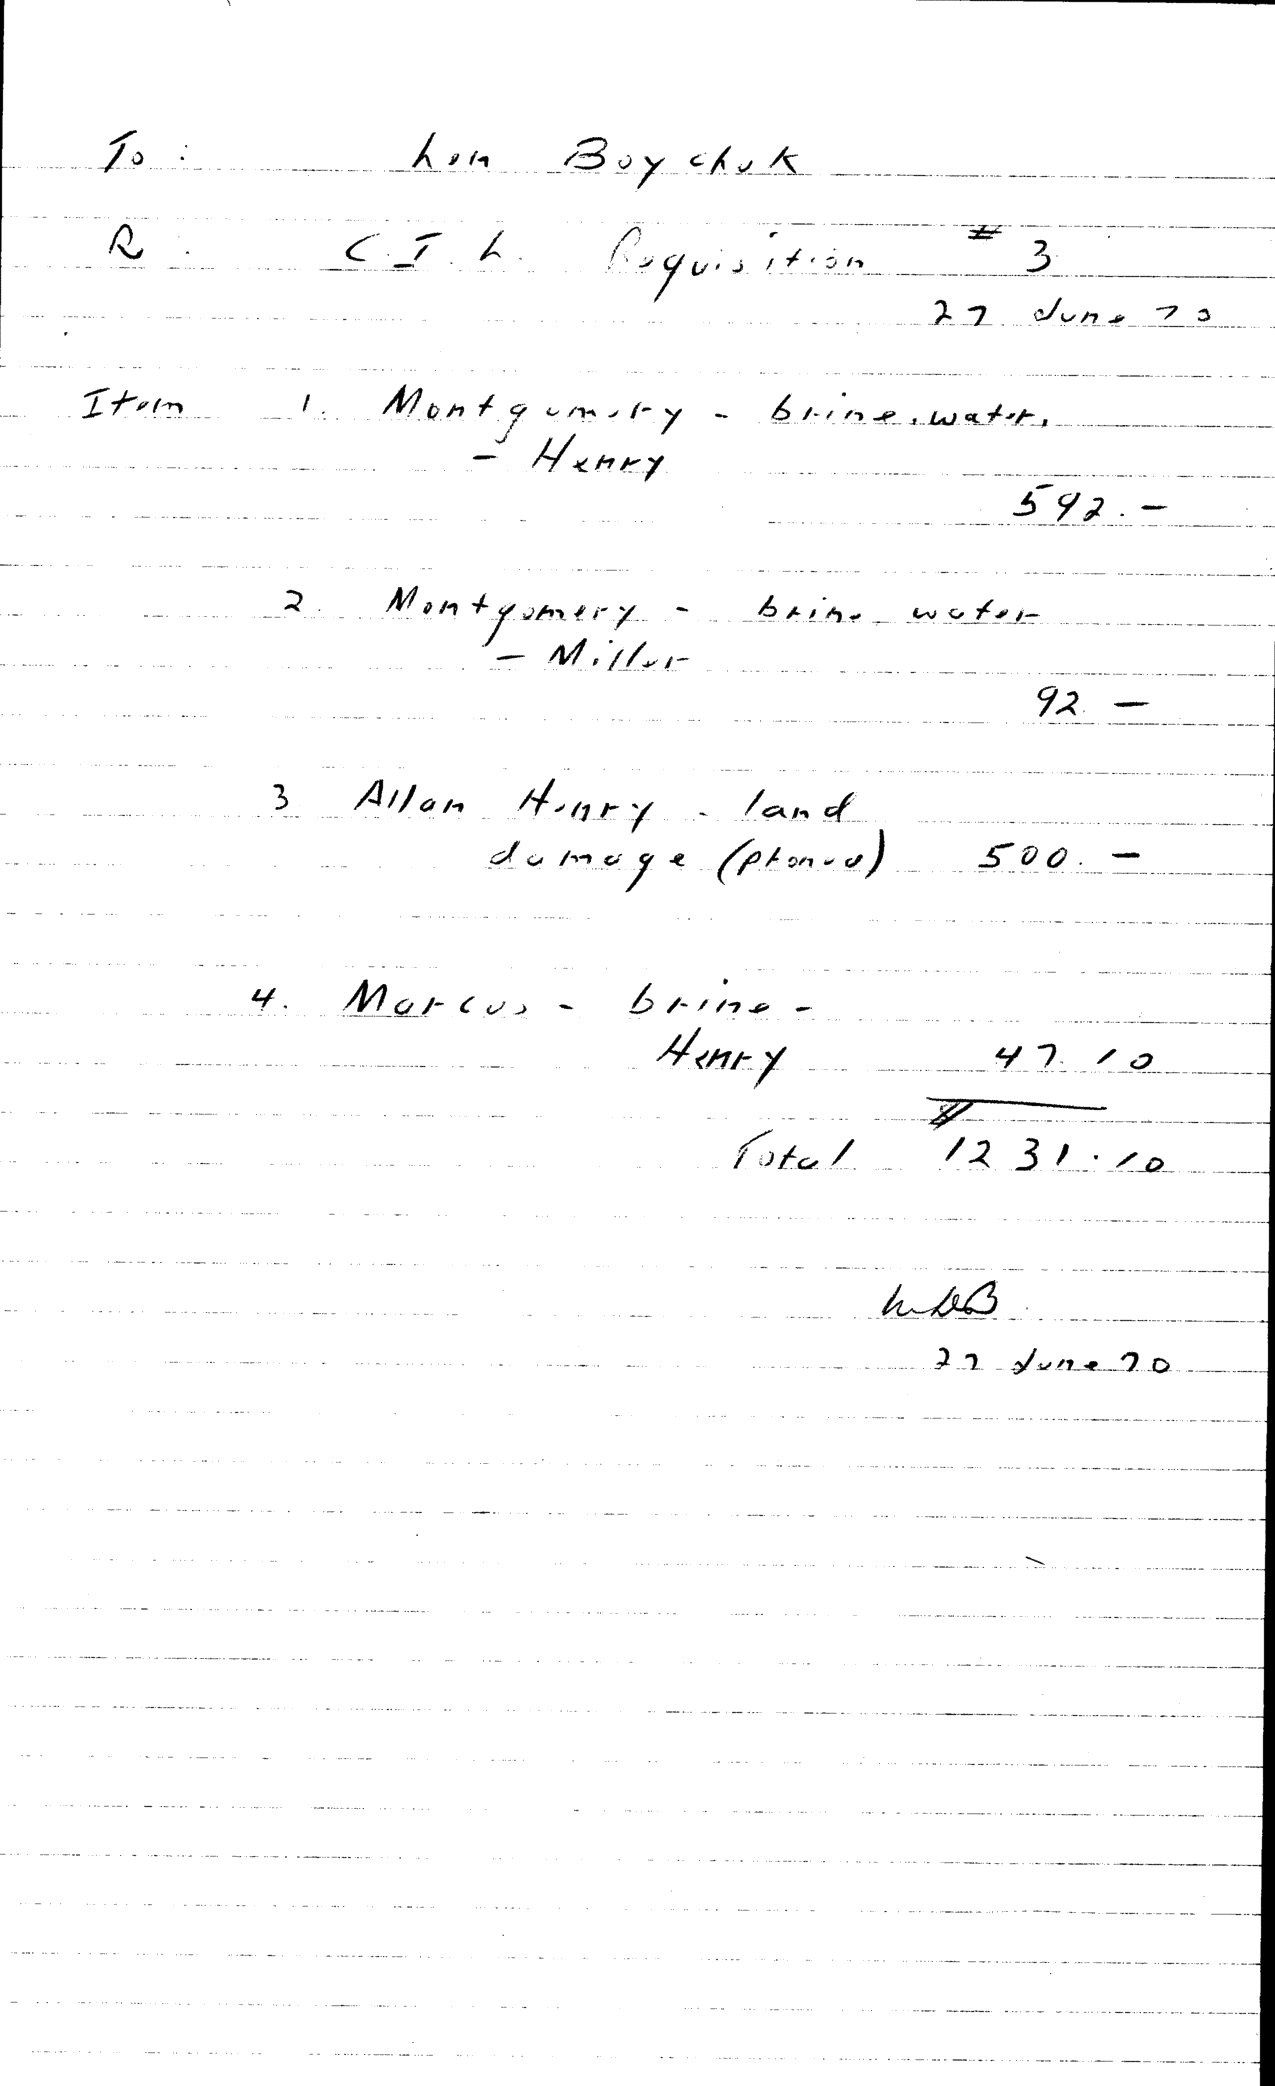 To : Len Boychuk
R : C.I.L. Requisition # 3
27 June 70
Item 1. Montgomery - brine water
- Henry
592.-
2. Montgomery - brine water
- Miller
92 -
3 Allan Henry - land
damage (phoned) 500.-
4. Marcus - brine -
Henry 47.10
Total 1231.10
27 June 70